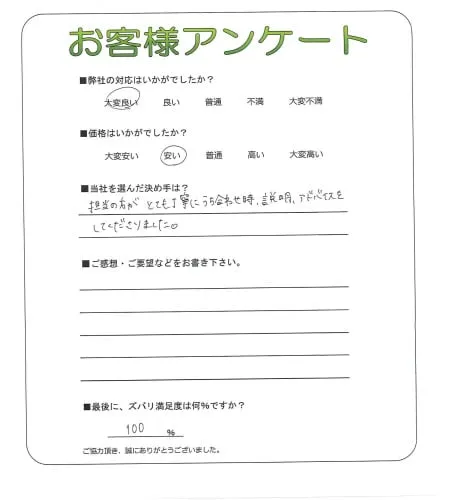 お客様アンケート
■弊社の対応はいかがでしたか?
大変良い 良い 普通 不満 大変不満
■価格はいかがでしたか?
大変安い 安い 普通 高い 大変高い
■当社を選んだ決め手は?
担当の方が とても丁寧にうち合わせ時、説明、アドバイスを
してくださりました。
■ご感想・ご要望などをお書き下さい。
■最後に、ズバリ満足度は何%ですか?
100 %
ご協力頂き、誠にありがとうございました。